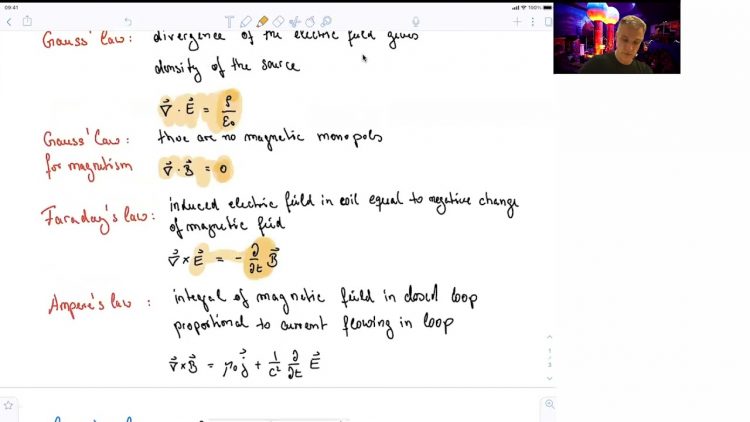 09:41
100%
Gauss' law: divergence of the electric field gives
density of the source
∇⃗ · E⃗ = ρ/ε₀
Gauss' law for magnetism: there are no magnetic monopols
∇⃗ · B⃗ = 0
Faraday's law: induced electric field in coil equal to negative change
of magnetic field
∇⃗ × E⃗ = - ∂/∂t B⃗
Ampere's law: integral of magnetic field in closed loop
proportional to current flowing in loop
∇⃗ × B⃗ = μ₀ j⃗ + 1/c² ∂/∂t E⃗
1
3